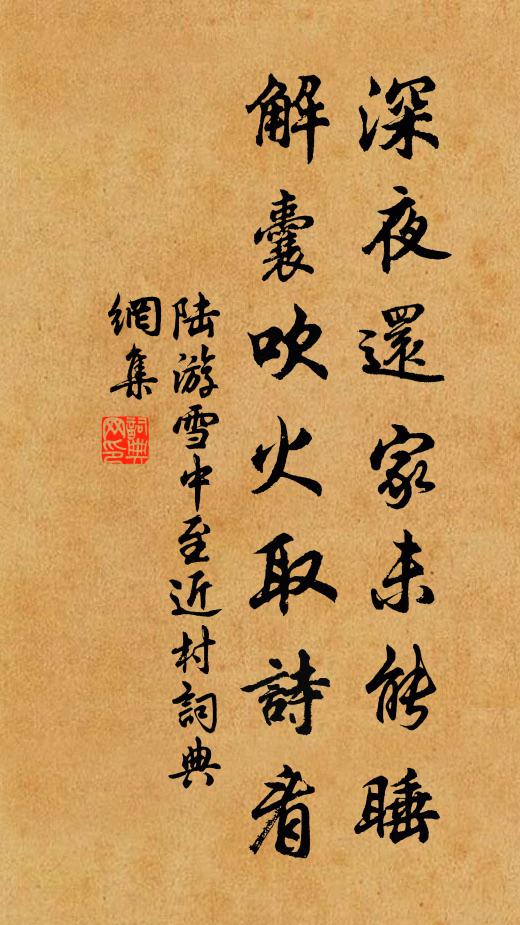 深夜還家未能睡
解囊吹火取詩看
陆游雪中至近村詞典
網集
詞典網印